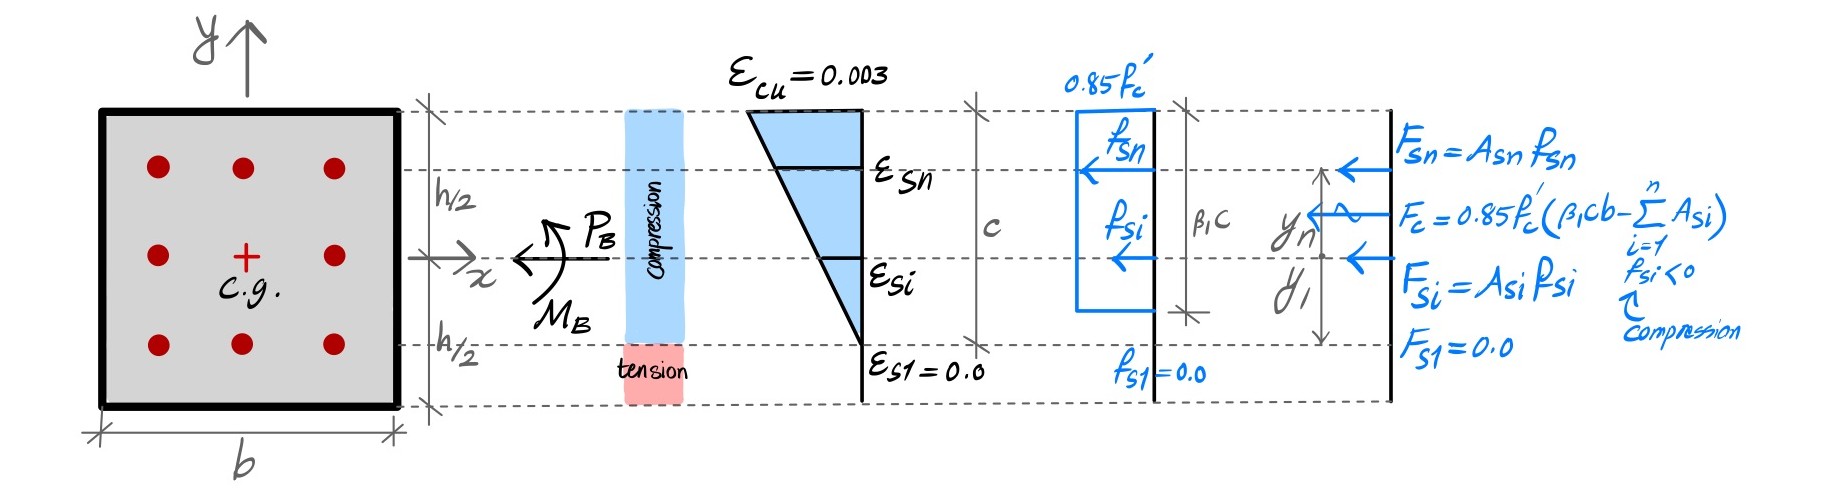 y
x
c.g.
b
h/2
h/2
P_B
M_B
compression
tension
ε_cu = 0.003
ε_sn
ε_si
ε_s1 = 0.0
c
0.85f'_c
f_sn
f_si
f_s1 = 0.0
β₁c
y_n
y_1
F_sn = A_sn f_sn
F_c = 0.85f'_c (β₁cb - Σ A_si)
n
i=1
f_si < 0
compression
F_si = A_si f_si
F_s1 = 0.0